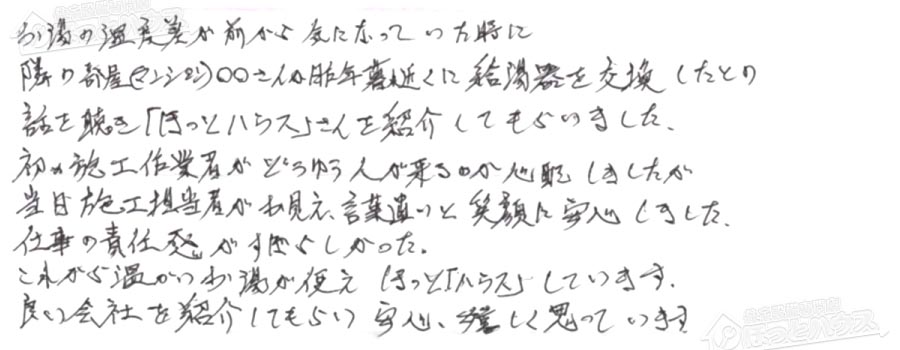 お湯の温度差が前から気になっていた時に
隣の部屋(マンション)○○さんが昨年暮近くに給湯器を交換したとの
話を聴き「ほっとハウス」さんを紹介してもらいました、
初め施工作業者がどうゆう人が来るのか心配しましたが
当日施工担当者がお見え、言葉遣いと笑顔に安心しました、
仕事の責任感がすばらしかった。
これから温かいお湯が使え ほっと「ハウス」しています.
良い会社を紹介してもらい 安心、嬉しく思っています
ほっとハウス